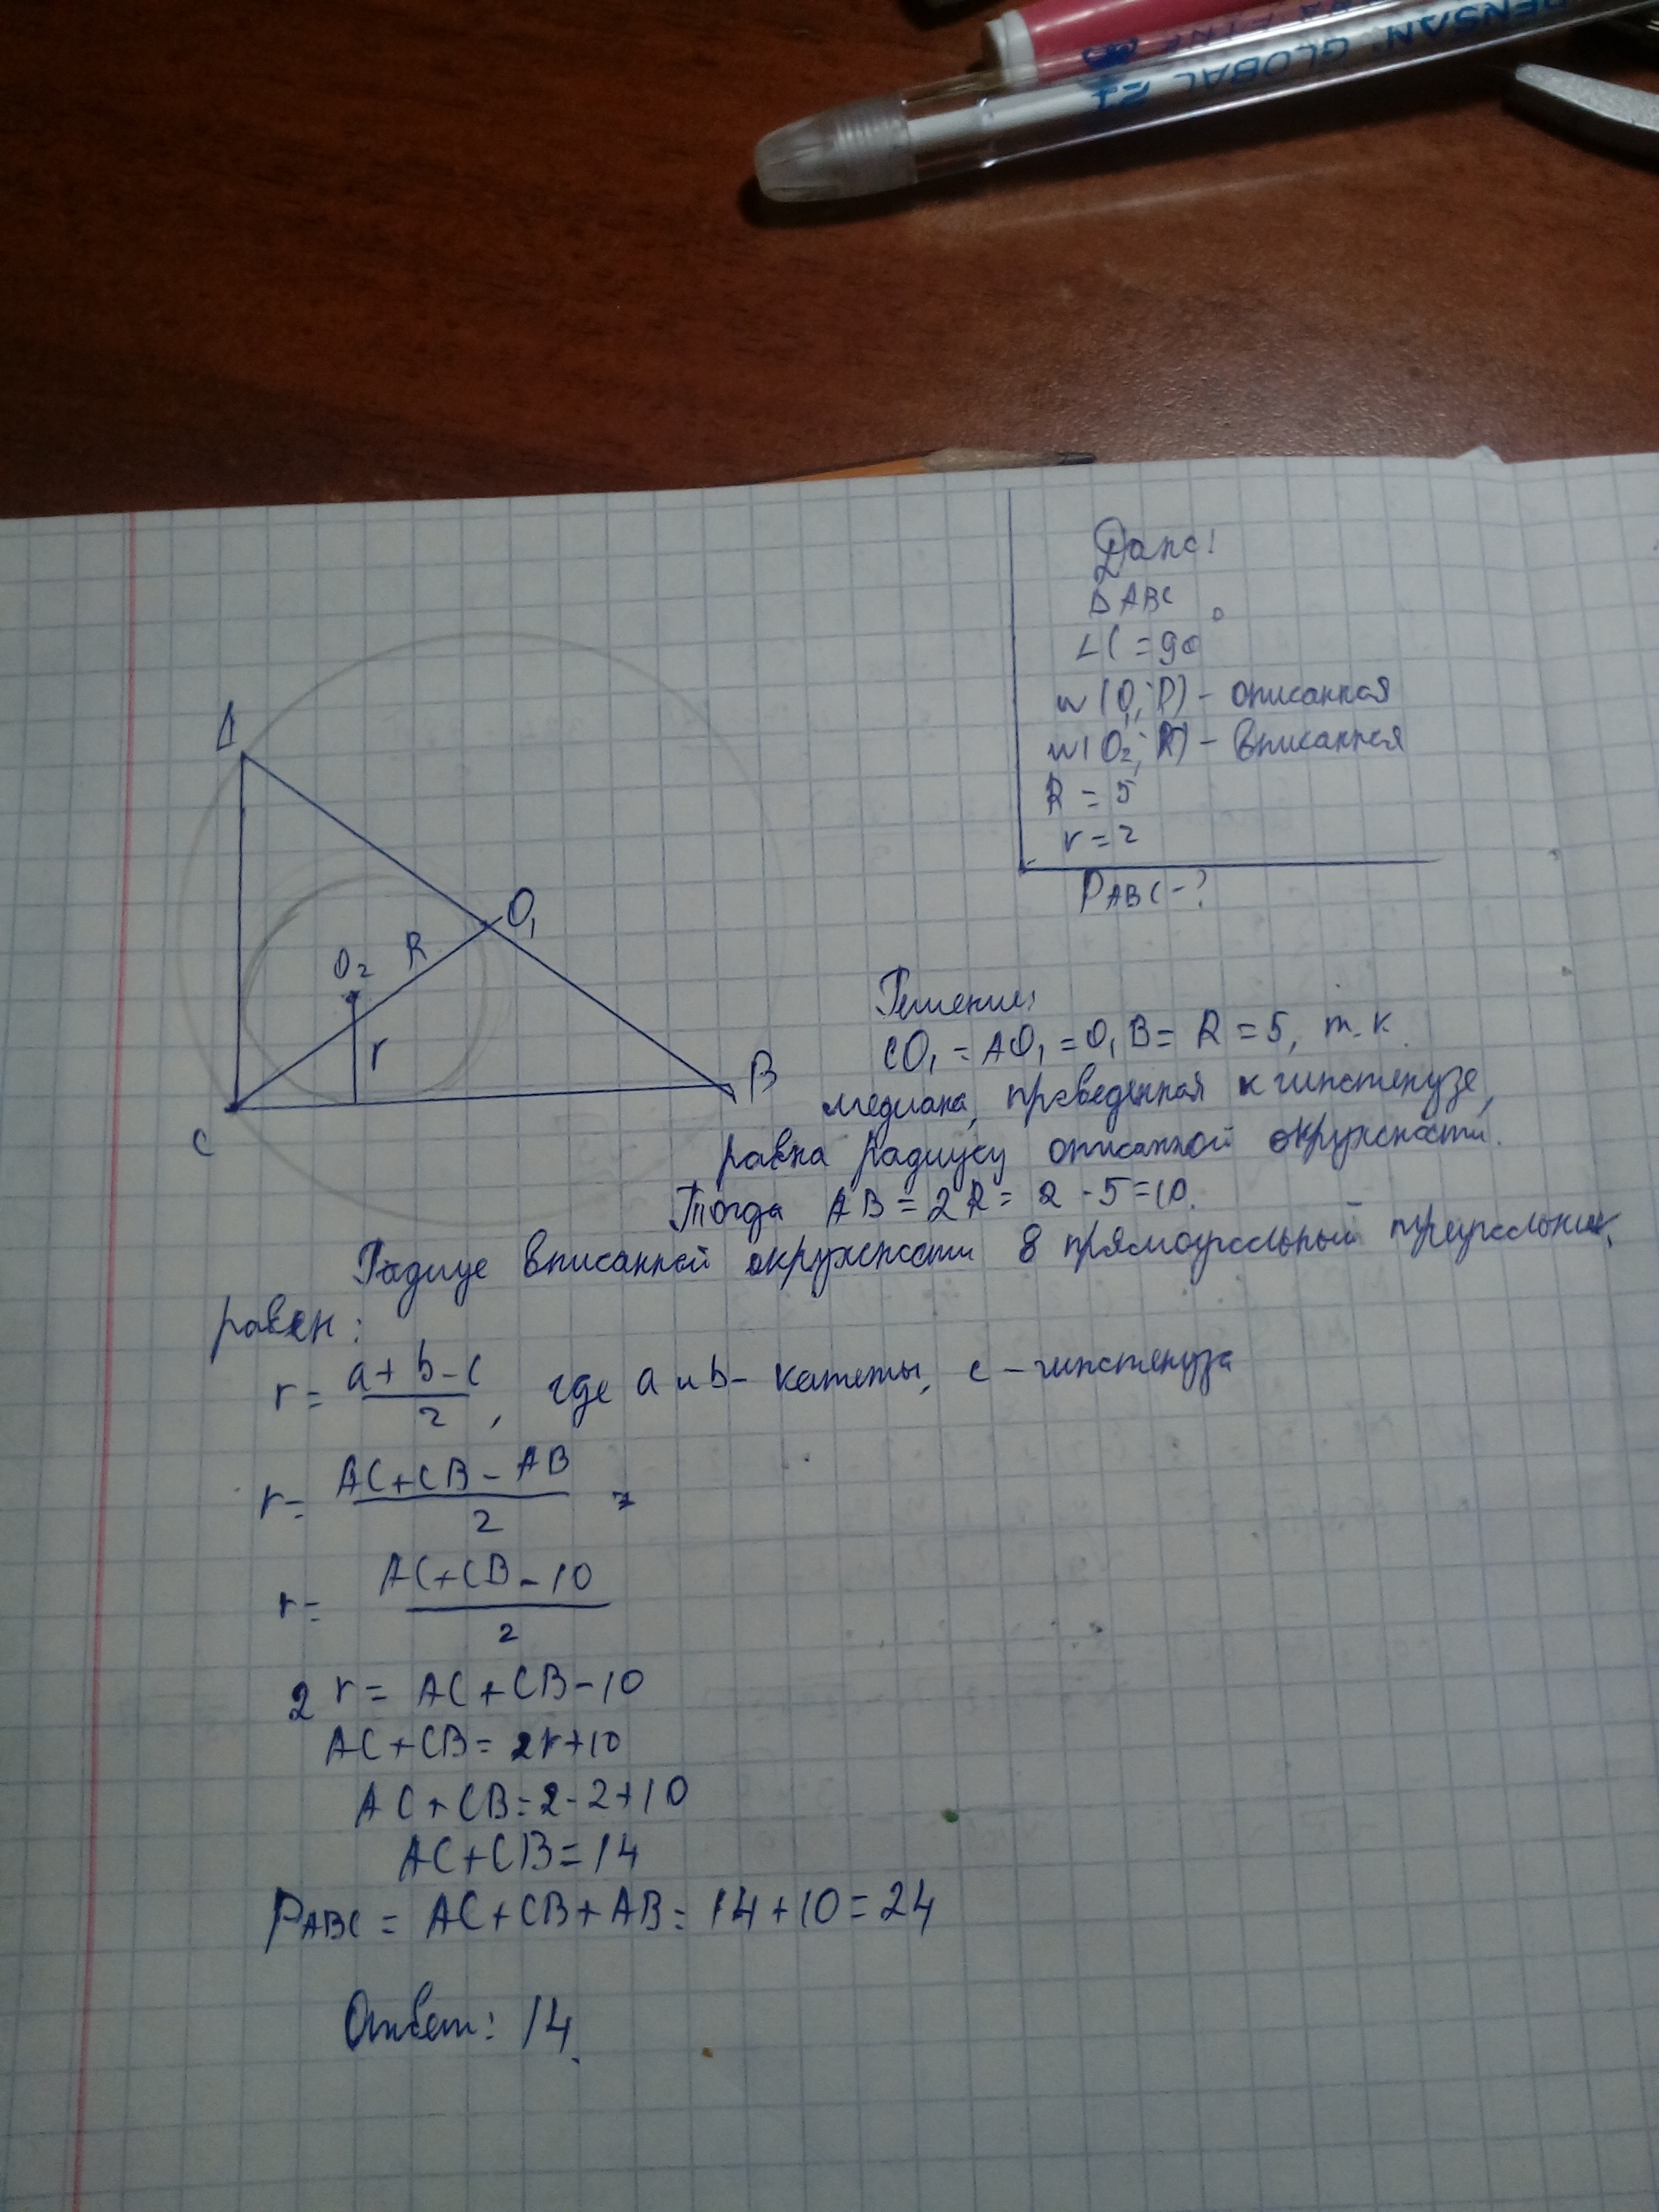 PENSAN GLOBAL 21
Дано:
Δ ABC
∠C = 90°
w (O₁; R) - описанная
w (O₂; R) - вписанная
R = 5
r = 2
P ABC - ?
A
O₁
R
O₂
r
B
C
Решение:
CO₁ = AO₁ = O₁B = R = 5, т.к.
медиана, проведенная к гипотенузе,
равна радиусу описанной окружности.
Тогда AB = 2R = 2 · 5 = 10.
Радиус вписанной окружности в прямоугольный треугольник,
равен:
r = (a + b - c) / 2, где a и b - катеты, c - гипотенуза
r = (AC + CB - AB) / 2
r = (AC + CB - 10) / 2
2 r = AC + CB - 10
AC + CB = 2r + 10
AC + CB = 2 · 2 + 10
AC + CB = 14
P ABC = AC + CB + AB = 14 + 10 = 24
Ответ: 14.